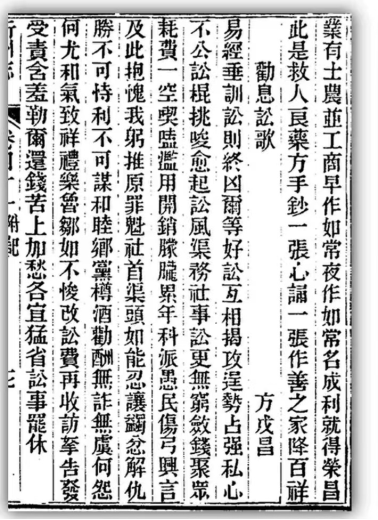 業有士農並工商早作如常夜作如常名成利就得榮昌
此是救人良藥方手鈔一張心誦一張作善之家降百祥
勸息訟歌　方戊昌
易經垂訓訟則終凶爾等好訟互相揭攻逞勢占强私心
不公訟棍挑唆愈起訟風渠務社事訟更無窮斂錢聚眾
耗費一空喫嗑濫用開銷朦朧累年科派愚民傷弓興言
及此抱愧我躬推原罪魁社首渠頭如能忍讓蠲忿解仇
勝不可恃利不可謀和睦鄉黨樽酒勸酬無詐無虞何怨
何尤和氣致祥禮樂魯鄒如不悛改訟費再收訪拏告發
受責含羞勒爾還錢苦上加愁各宜猛省訟事罷休
州志　卷四十一附記